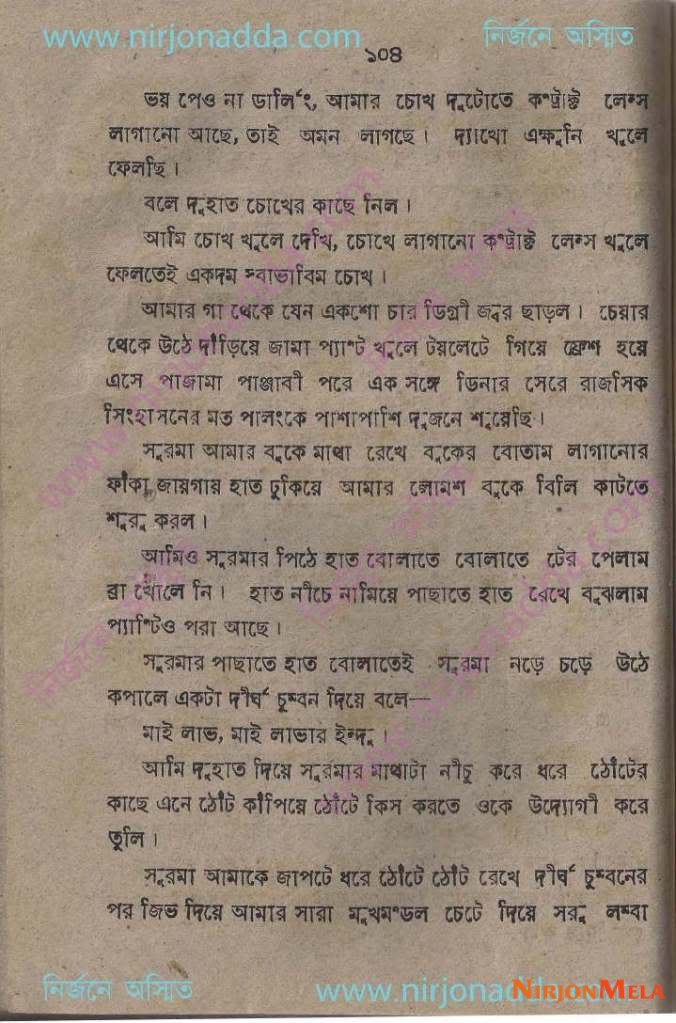 www.nirjonadda.com নির্জনে অস্মিত
১০৪
ভয় পেও না ডার্লিং, আমার চোখ দুটোতে কণ্ট্রাক্ট লেন্স
লাগানো আছে, তাই অমন লাগছে। দ্যাখো এক্ষুনি খুলে
ফেলছি।
বলে দুহাত চোখের কাছে নিল।
আমি চোখ খুলে দেখি, চোখে লাগানো কণ্ট্রাক্ট লেন্স খুলে
ফেলতেই একদম স্বাভাবিম চোখ।
আমার গা থেকে যেন একশো চার ডিগ্রী জ্বর ছাড়ল। চেয়ার
থেকে উঠে দাঁড়িয়ে জামা প্যাণ্ট খুলে টয়লেটে গিয়ে ফ্রেশ হয়ে
এসে পাজামা পাঞ্জাবী পরে এক সঙ্গে ডিনার সেরে রাজসিক
সিংহাসনের মত পালংকে পাশাপাশি দুজনে শুয়েছি।
সুরমা আমার বুকে মাথা রেখে বুকের বোতাম লাগানোর
ফাঁকা জায়গায় হাত ঢুকিয়ে আমার লোমশ বুকে বিলি কাটতে
শুরু করল।
আমিও সুরমার পিঠে হাত বোলাতে বোলাতে টের পেলাম
ব্রা খোলে নি। হাত নীচে নামিয়ে পাছাতে হাত রেখে বুঝলাম
প্যাণ্টিও পরা আছে।
সুরমার পাছাতে হাত বোলাতেই সুরমা নড়ে চড়ে উঠে
কপালে একটা দীর্ঘ চুম্বন দিয়ে বলে—
মাই লাভ, মাই লাভার ইন্দু।
আমি দুহাত দিয়ে সুরমার মাথাটা নীচু করে ধরে ঠোঁটের
কাছে এনে ঠোঁট কাঁপিয়ে ঠোঁটে কিস করতে ওকে উদ্যোগী করে
তুলি।
সুরমা আমাকে জাপটে ধরে ঠোঁটে ঠোঁট রেখে দীর্ঘ চুম্বনের
পর জিভ দিয়ে আমার সারা মুখমণ্ডল চেটে দিয়ে সরু লম্বা
নির্জনে অস্মিত www.nirjonadda.com
NIRJONMELA